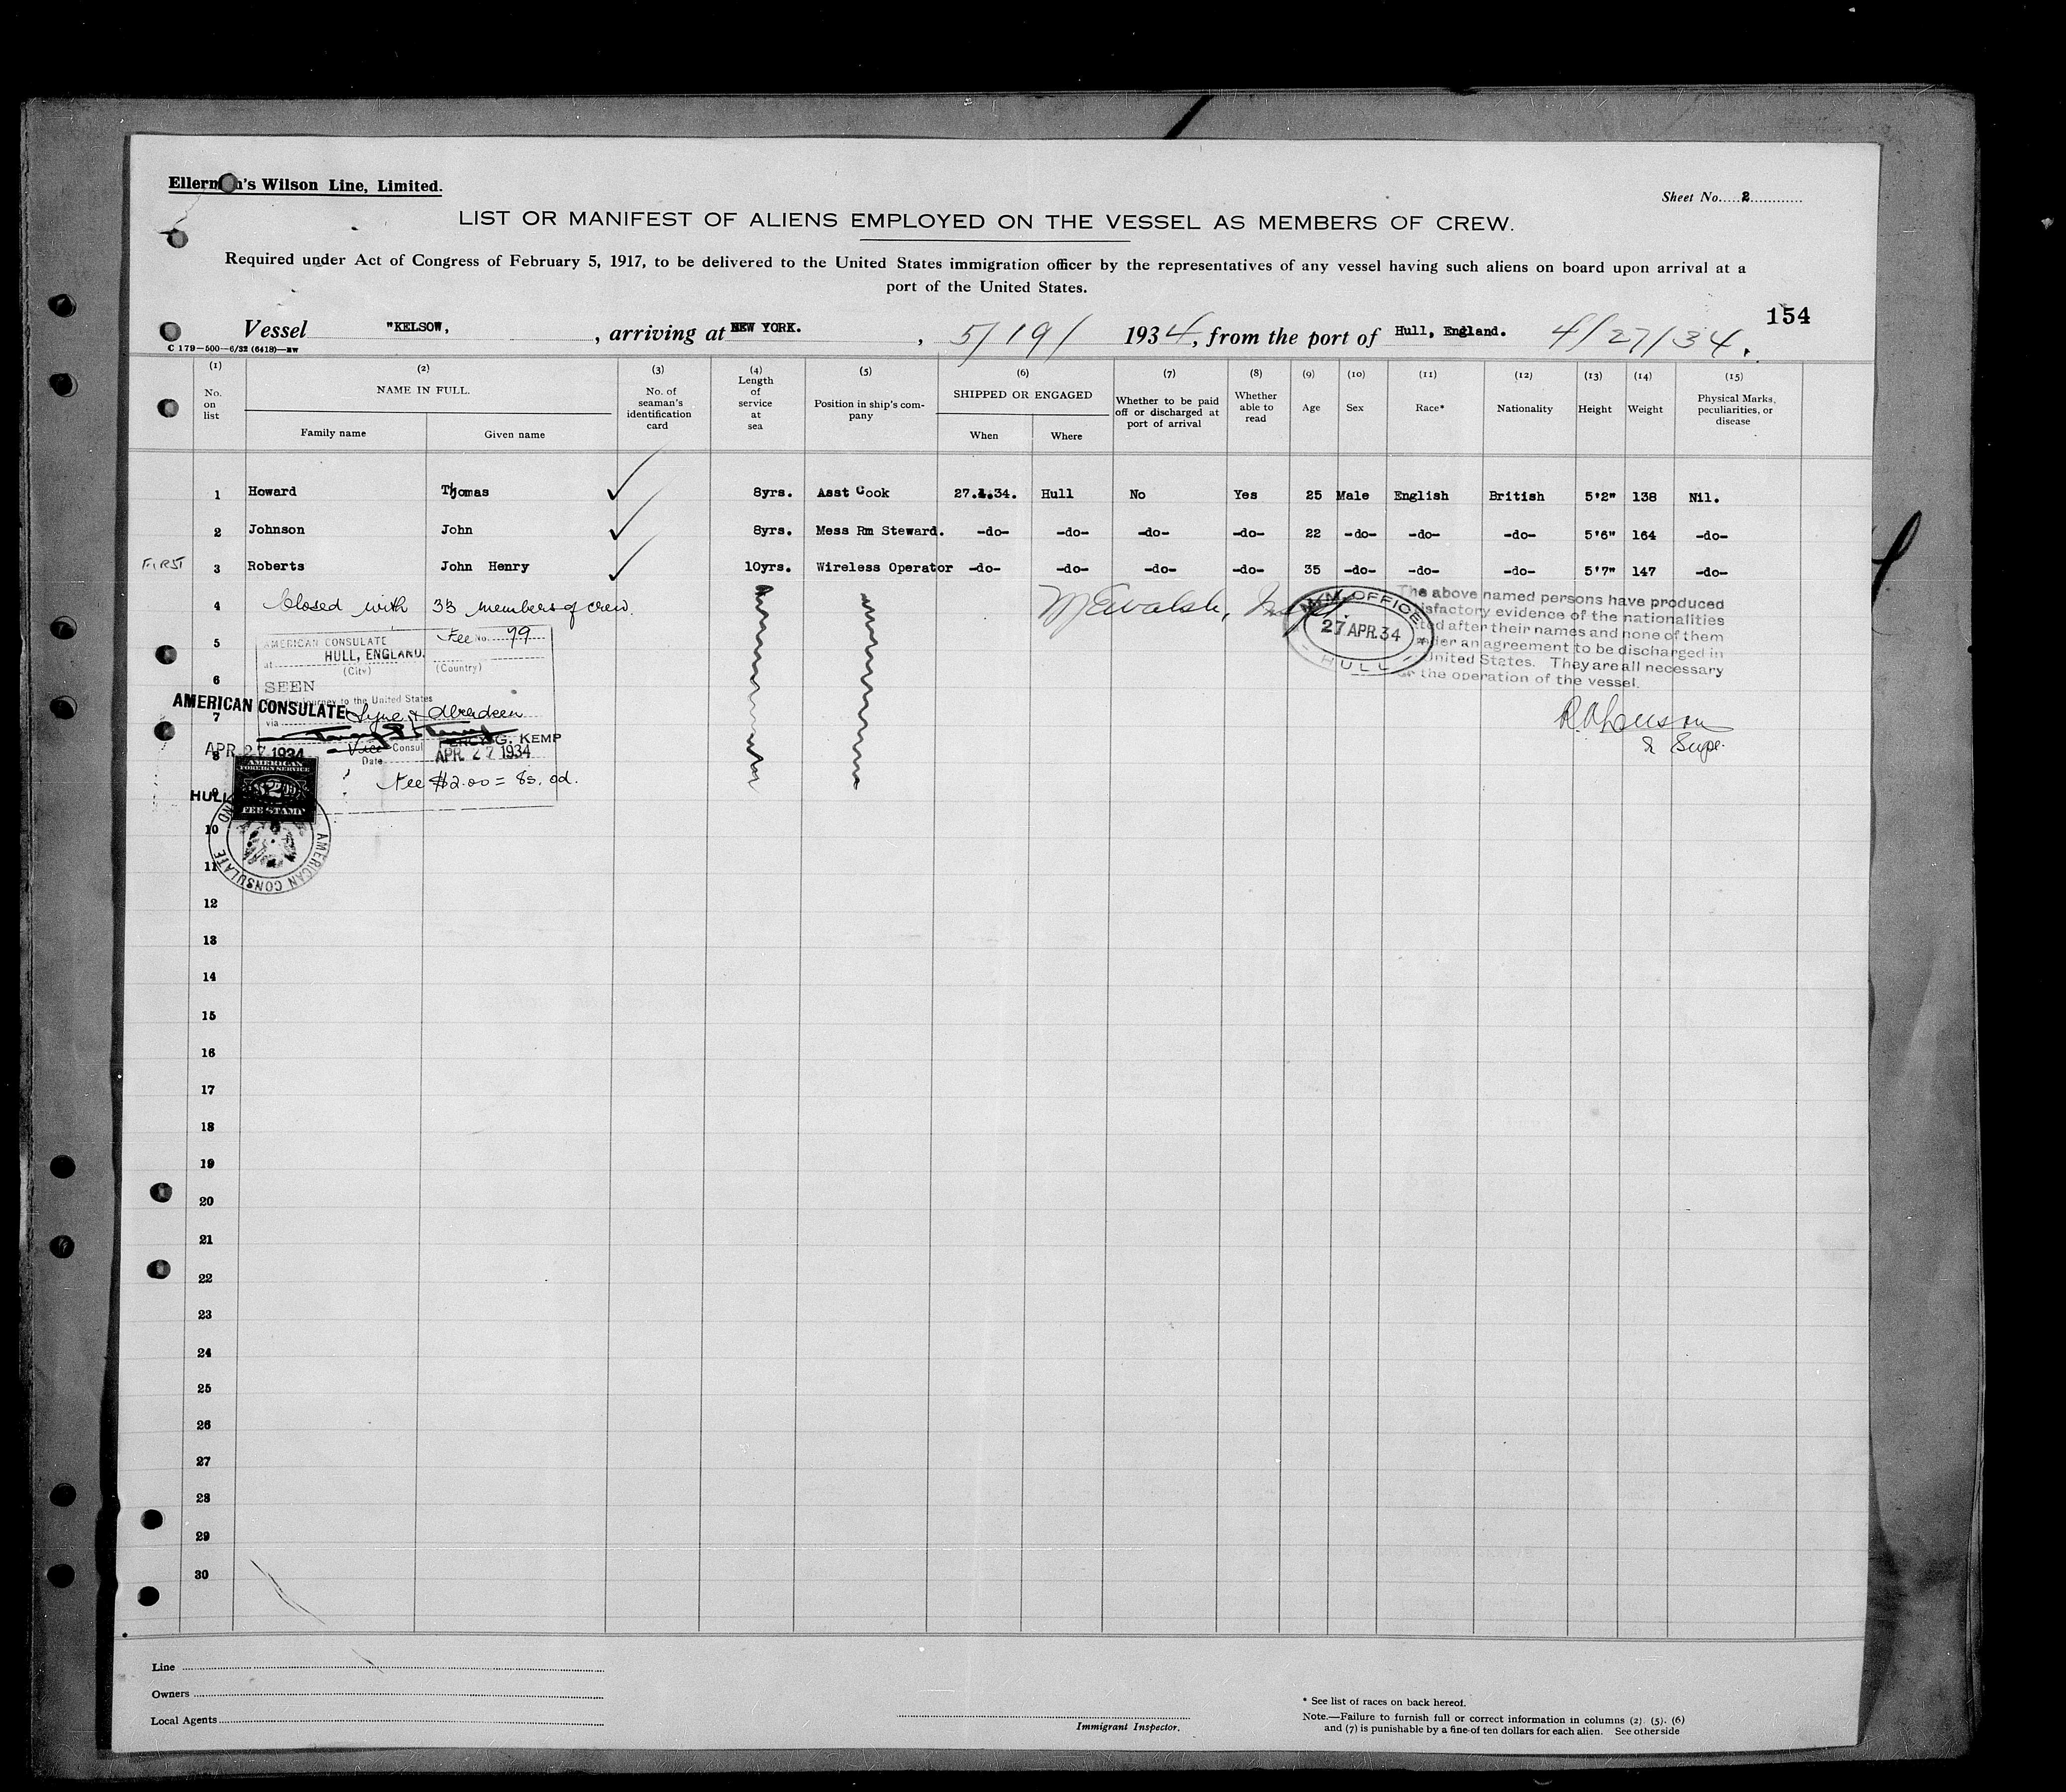 Ellerman's Wilson Line, Limited.
Sheet No.....2............
LIST OR MANIFEST OF ALIENS EMPLOYED ON THE VESSEL AS MEMBERS OF CREW.
Required under Act of Congress of February 5, 1917, to be delivered to the United States immigration officer by the representatives of any vessel having such aliens on board upon arrival at a
port of the United States.
154
Vessel "KELSOW, , arriving at NEW YORK. , 5/19/ 1934, from the port of Hull, England. 4/27/34.
C 179—500—6/32 (6418)—
(1) (2) (3) (4) (5) (6) (7) (8) (9) (10) (11) (12) (13) (14) (15)
No. on list
NAME IN FULL.
Family name
Given name
No. of seaman's identification card
Length of service at sea
Position in ship's company
SHIPPED OR ENGAGED
When
Where
Whether to be paid off or discharged at port of arrival
Whether able to read
Age
Sex
Race*
Nationality
Height
Weight
Physical Marks, peculiarities, or disease
1 Howard Thomas 8yrs. Asst Cook 27.4.34. Hull No Yes 25 Male English British 5'2" 138 Nil.
2 Johnson John 8yrs. Mess Rm Steward. -do- -do- -do- -do- 22 -do- -do- -do- 5'6" 164 -do-
FIRST 3 Roberts John Henry 10yrs. Wireless Operator -do- -do- -do- -do- 35 -do- -do- -do- 5'7" 147 -do-
4 Closed with 33 members of crew.
5
6
7
8
9
10
11
12
13
14
15
16
17
18
19
20
21
22
23
24
25
26
27
28
29
30
AMERICAN CONSULATE
Fee No. 79
at HULL, ENGLAND.
(City) (Country)
SEEN
journey to the United States
AMERICAN CONSULATE
via Tyne & Aberdeen
PERCY G. KEMP
Vice Consul
APR 27 1934
Date APR 27 1934
Fee $2.00 = 8s. 0d.
HULL
AMERICAN
FOREIGN SERVICE
2
FEE STAMP
AMERICAN CONSULATE
OFFICE
27 APR. 34
HULL
The above named persons have produced
satisfactory evidence of the nationalities
after their names and none of them
under an agreement to be discharged in
United States. They are all necessary
the operation of the vessel.
Supt.
Line
Owners
Local Agents
Immigrant Inspector.
* See list of races on back hereof.
Note.—Failure to furnish full or correct information in columns (2). (5). (6)
and (7) is punishable by a fine of ten dollars for each alien. See other side